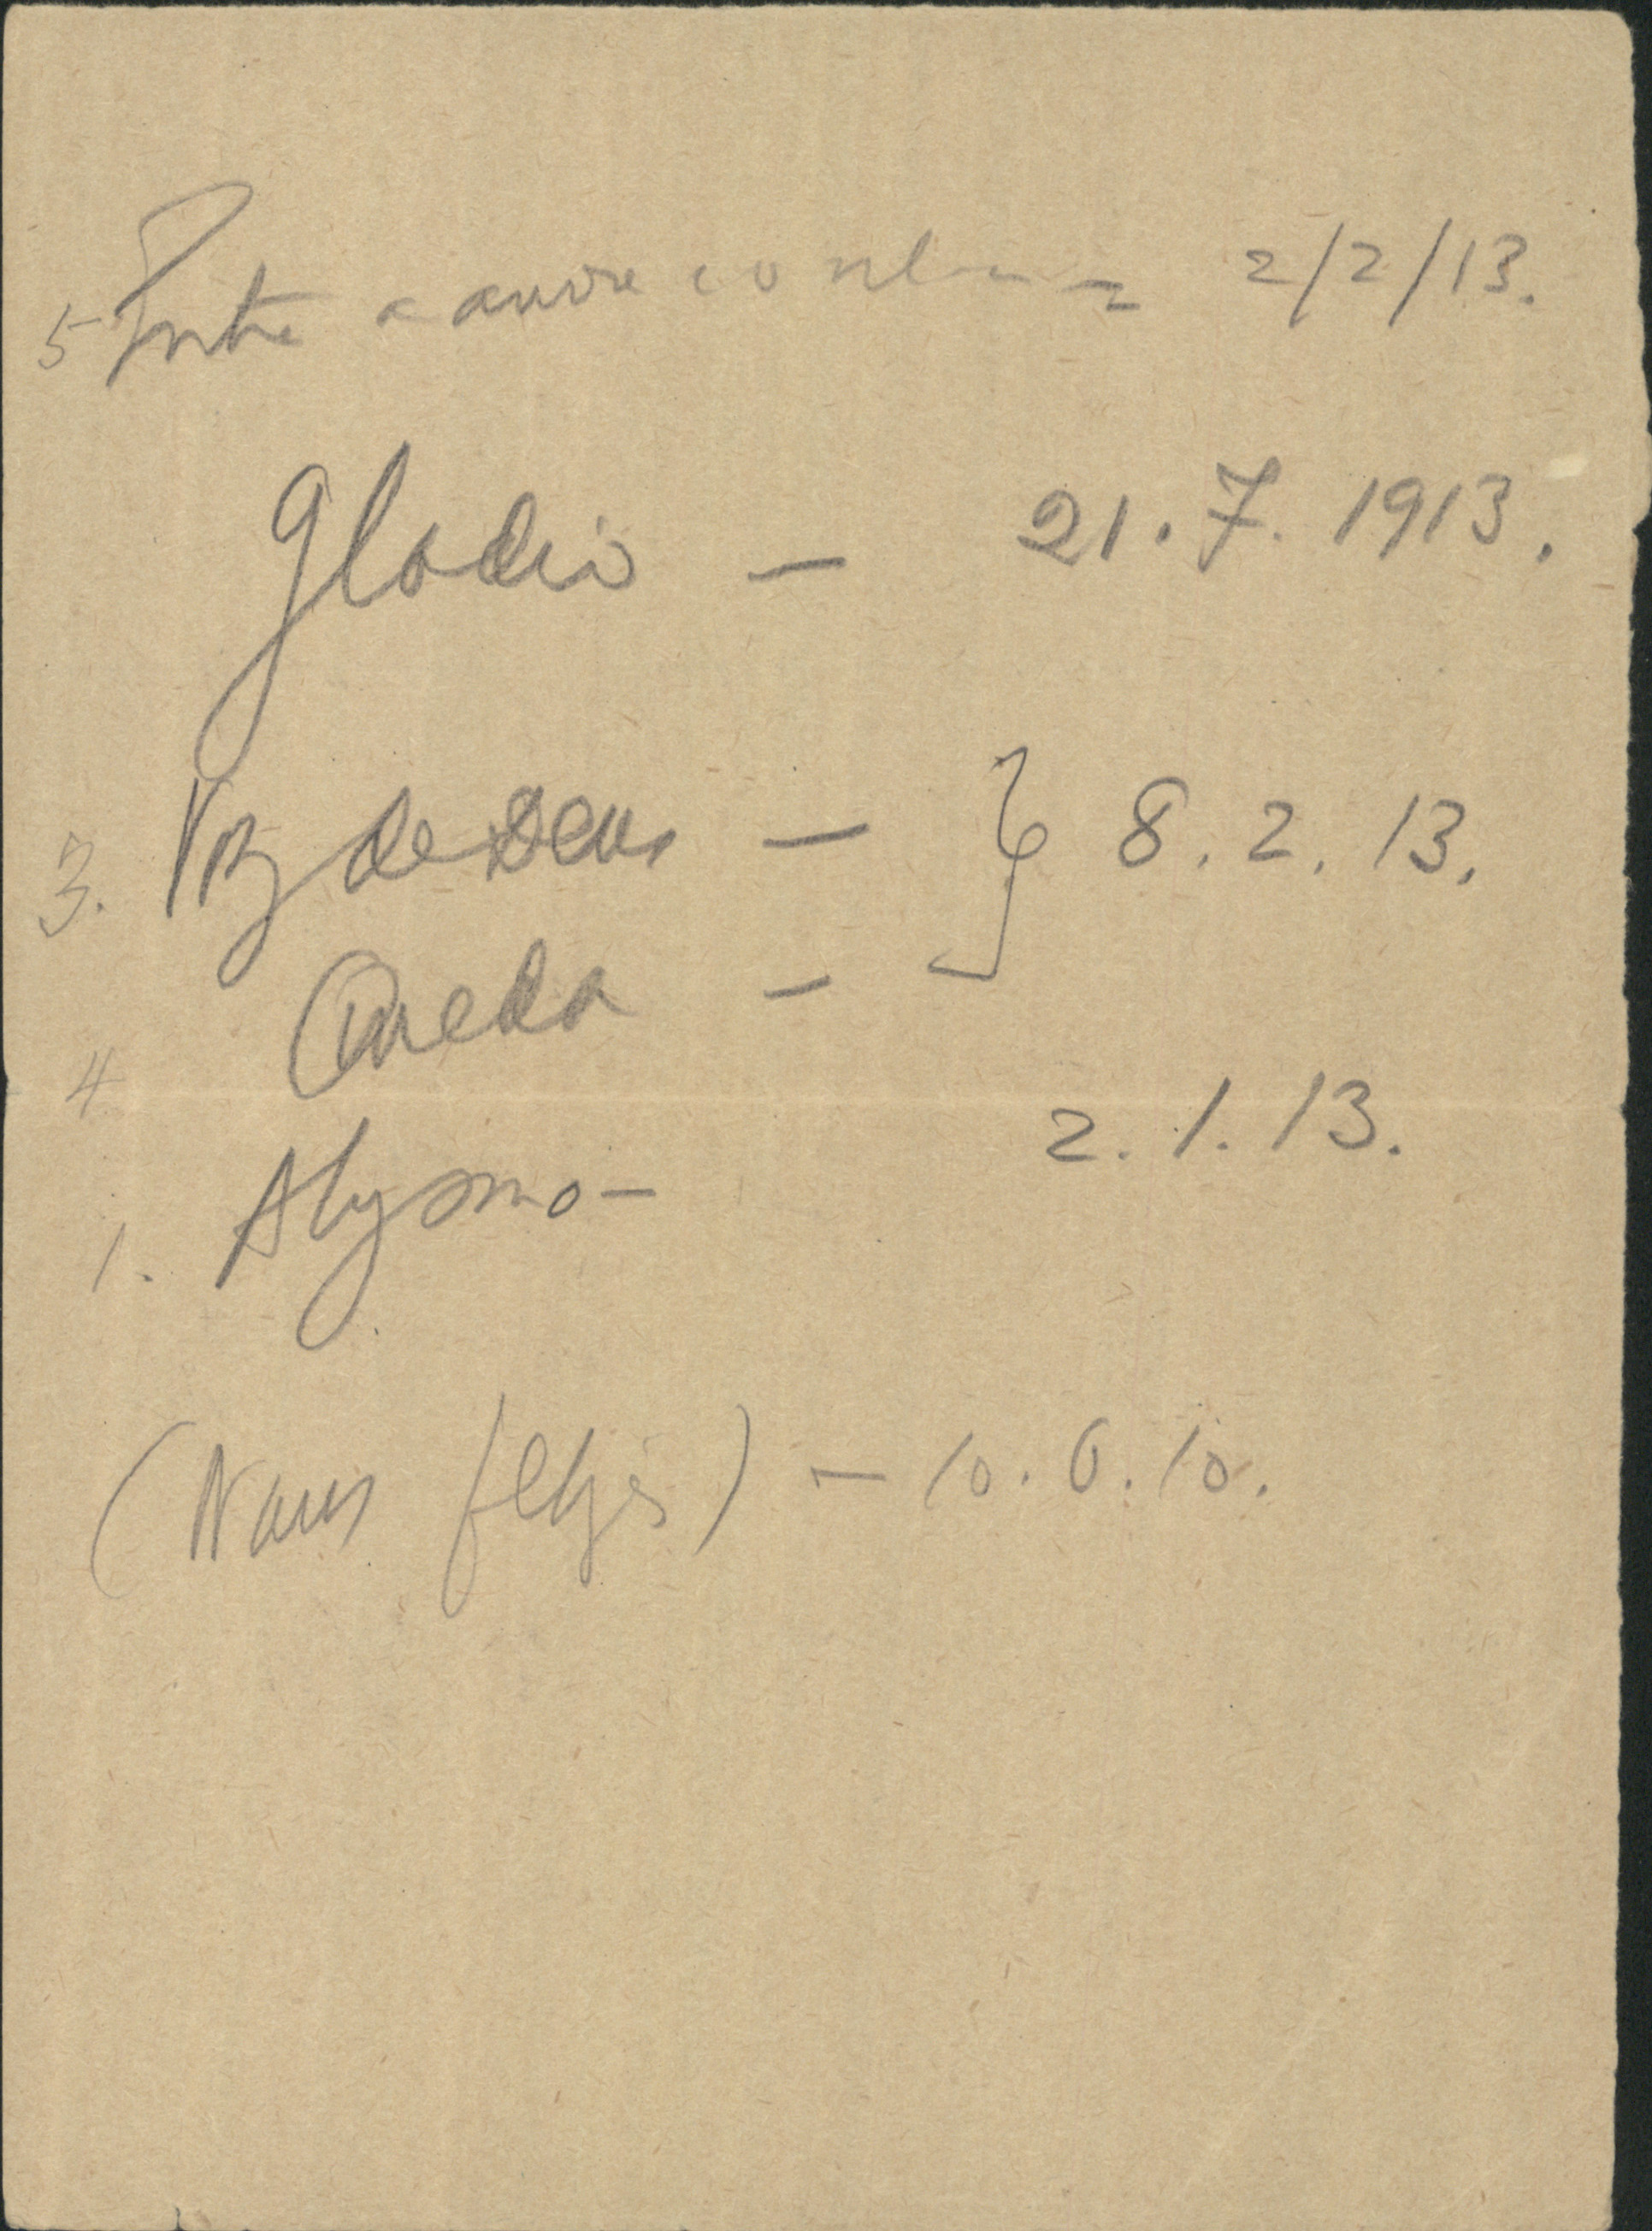 5 Entre a arvore e o vel-a — 2/2/13.
Gladio — 21.7.1913.
3. Voz de Deus — } 8.2.13.
4 Queda —
1. Abysmo — 2.1.13.
(Naus felizes) — 10.6.10.